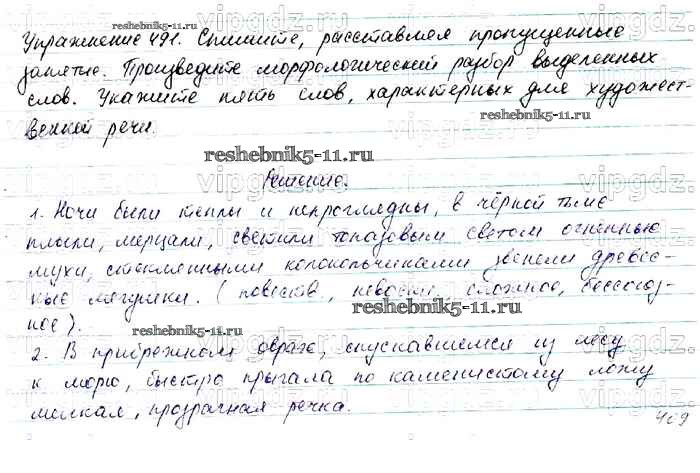 Упражнение 491. Спишите, расставляя пропущенные
запятые. Произведите морфологический разбор выделенных
слов. Укажите пять слов, характерных для художест-
венной речи.
reshebnik5-11.ru
Решение.
1. Ночи были теплы и непроглядны, в чёрной тьме
плыли, мерцали, светили топазовым светом огненные
мухи, стеклянными колокольчиками звенели древес-
ные лягушки. (повеств., невоскл., сложное, бессоюз-
ное).
reshebnik5-11.ru
2. В прибрежном овраге, спускавшемся из лесу
к морю, быстро прыгала по каменистому ложу
мелкая, прозрачная речка.
409